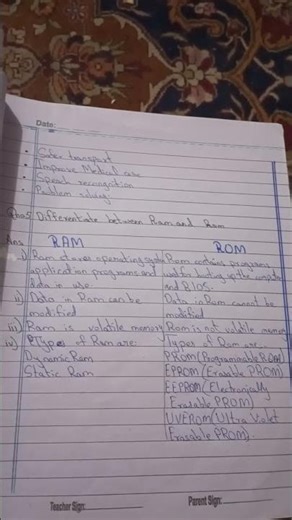 Date:
• Safer transport
• Improve Medical care
• Speech recognition
• Problem solving
Differentiate between Ram and Rom
Ans RAM ROM
i) Ram stores operating Rom contains programs
application programs and used for booting up the computer
data in use and BIOS.
ii) Data in Ram can be Data in Rom cannot be
modified modified
iii) Ram is volatile memory Rom is not volatile memory
iv) Types of Ram are: Types of Rom are:
Dynamic Ram PROM (Programmable ROM)
Static Ram EPROM (Erasable PROM)
EEPROM (Electronically
Erasable PROM)
UVEROM (Ultra Violet
Erasable PROM).
Teacher Sign: Parent Sign: